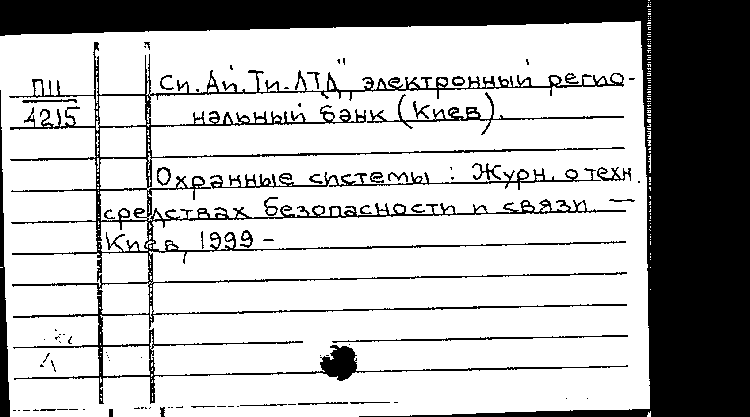 П11
4215
„Си.Ай.Ти.ЛТД", электронный регио-
нальный банк (Киев).
Охранные системы : Журн. о техн.
средствах безопасности и связи. —
Киев, 1999 -